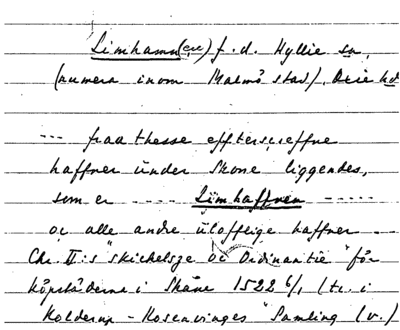 Limhamn(en) f.d. Hyllie sn,
(numera inom Malmö stad), Oxie hd
--- fraa thesse effterscreffne
haffner under Skone liggendes,
som er ---- Limhaffnen -----
oc alle andre ulofflige haffner --
Chr. II:s "skickelsze oc Ordinantie" för
köpstäderna i Skåne 1522 6/1 (tr. i
Kolderup-Rosenvinges Samling (v.)